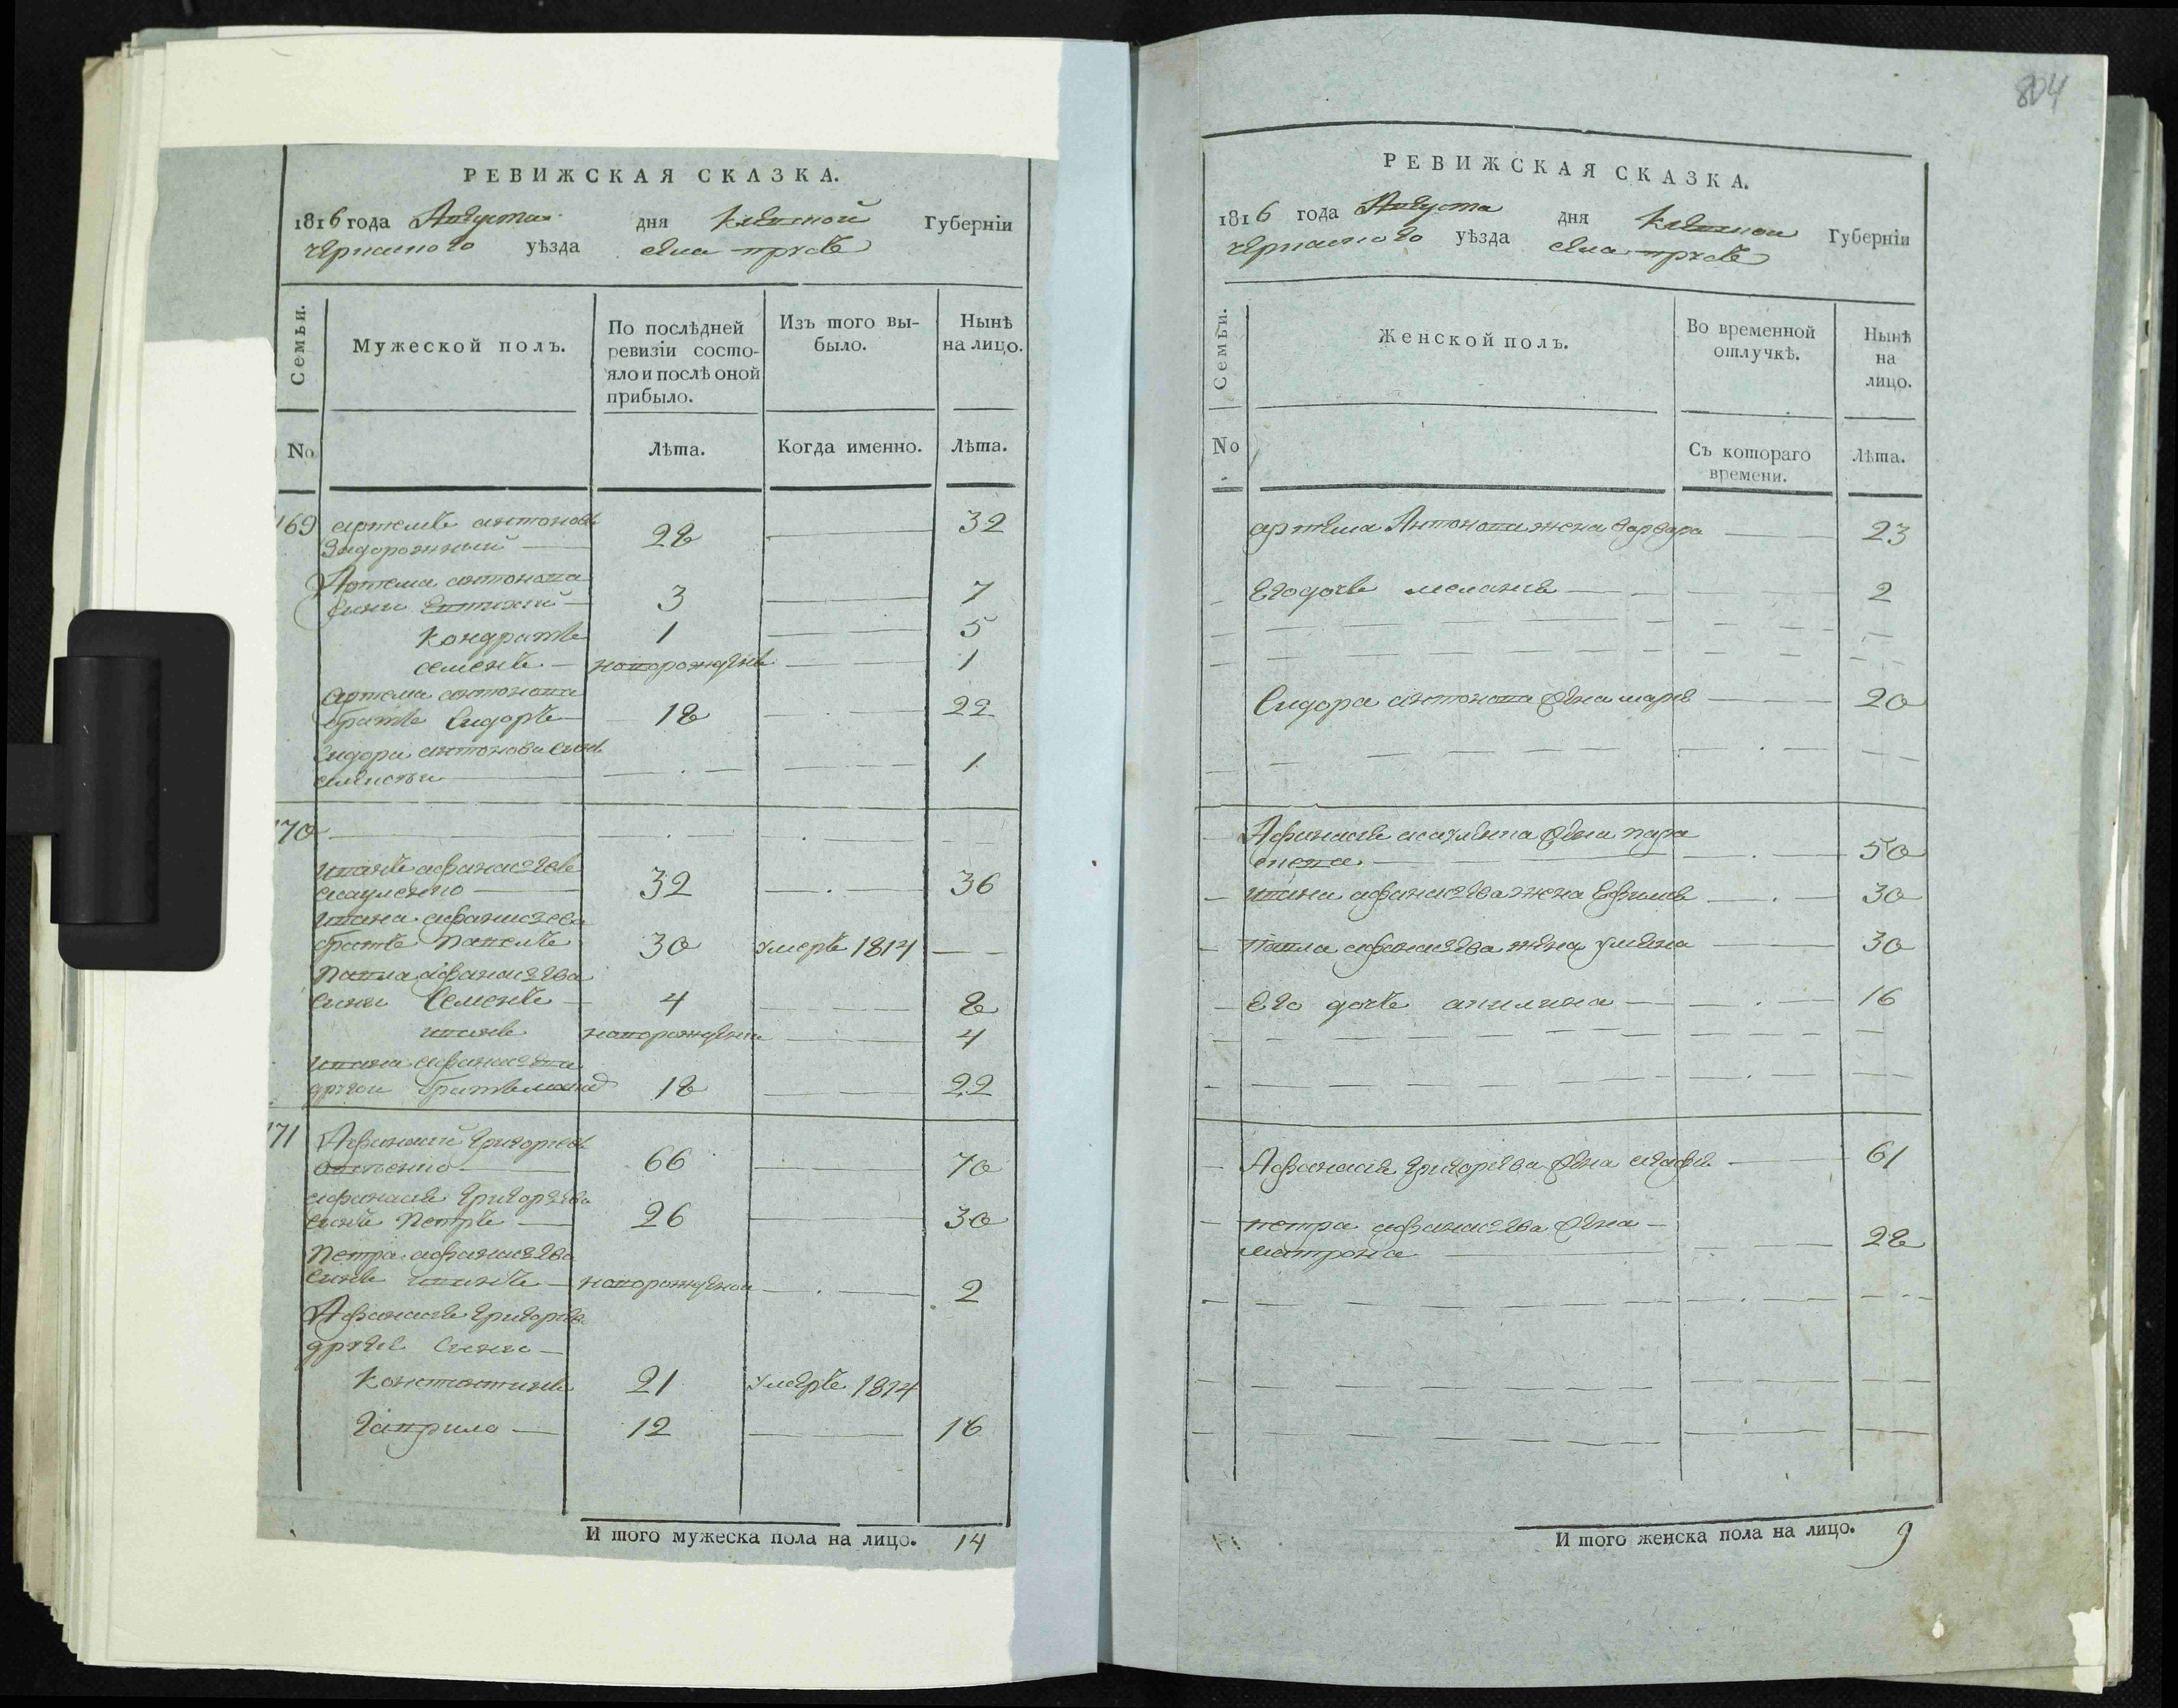 804
РЕВИЖСКАЯ СКАЗКА.
1816 года Августа дня Киевской Губерніи
черкаского уѣзда села
Семьи.
Мужеской полъ.
По послѣдней ревизіи состояло и послѣ оной прибыло.
Изъ того выбыло.
Нынѣ на лицо.
No
Лѣта.
Когда именно.
Лѣта.
169 артемъ антоновъ
Задорожный — 28 — 32
Артема антонова
сини Евтихий — 3 — 7
Кондратъ 1 — 5
семенъ — новорожденъ — 1
артема антонова
братъ Сидоръ — 18 — 22
Сидора антонова синъ
1
170
иванъ афанасіевъ
32 — 36
ивана афанасіева
братъ павелъ 30 умеръ 1814 —
павла афанасіева
сини Семенъ — 4 — 8
иванъ новорожденъ — 4
ивана афанасіева
другои братъ 18 — 22
171 Афанасий Григориевъ
66 — 70
афанасія Григоріева
синъ Петръ — 26 — 30
Петра афанасіева
синъ иванъ — новорожденои — 2
Афанасія Григоріева
другіе сини —
Константинъ 21 умеръ 1814
Гаврило — 12 — 16
И того мужеска пола на лицо. 14
РЕВИЖСКАЯ СКАЗКА.
1816 года Августа дня Киевскои Губерніи
черкаского уѣзда села
Семьи.
Женской полъ.
Во временной отлучкѣ.
Нынѣ на лицо.
No
Съ котораго времени.
Лѣта.
артема Антонова жена варвара — 23
Его дочь меланія — 2
Сидора антонова жена марія — 20
Афанасія жена пара
скева — 50
ивана афанасіева жена Ефимія — 30
павла афанасіева жена уліяна — 30
Его дочь акилина — 16
Афанасія Григоріева жена агафія — 61
петра афанасіева жена —
матрона — 28
И того женска пола на лицо. 9